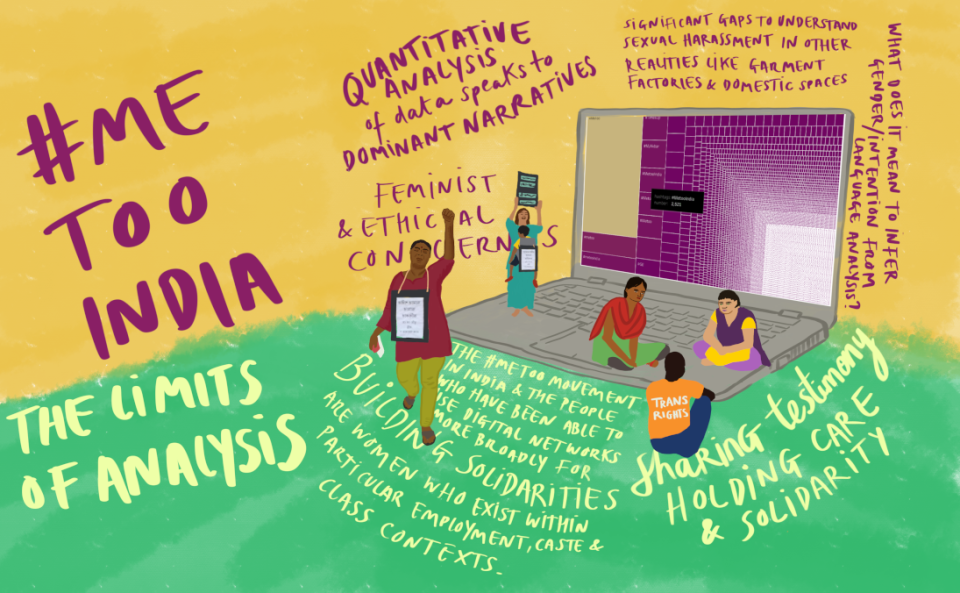 #ME
TOO
INDIA
THE LIMITS
OF ANALYSIS
QUANTITATIVE
ANALYSIS
of data speaks to
DOMINANT NARRATIVES
FEMINIST
& ETHICAL
CONCERNS
SIGNIFICANT GAPS TO UNDERSTAND
SEXUAL HARASSMENT IN OTHER
REALITIES LIKE GARMENT
FACTORIES & DOMESTIC SPACES
WHAT DOES IT MEAN TO INFER
GENDER/INTENTION FROM
LANGUAGE ANALYSIS?
THE #METOO MOVEMENT
IN INDIA & THE PEOPLE
WHO HAVE BEEN ABLE TO
USE DIGITAL NETWORKS
MORE BROADLY FOR
BUILDING SOLIDARITIES
ARE WOMEN WHO EXIST WITHIN
PARTICULAR EMPLOYMENT, CASTE &
CLASS CONTEXTS.
TRANS
RIGHTS
sharing testimony
HOLDING CARE
& SOLIDARITY